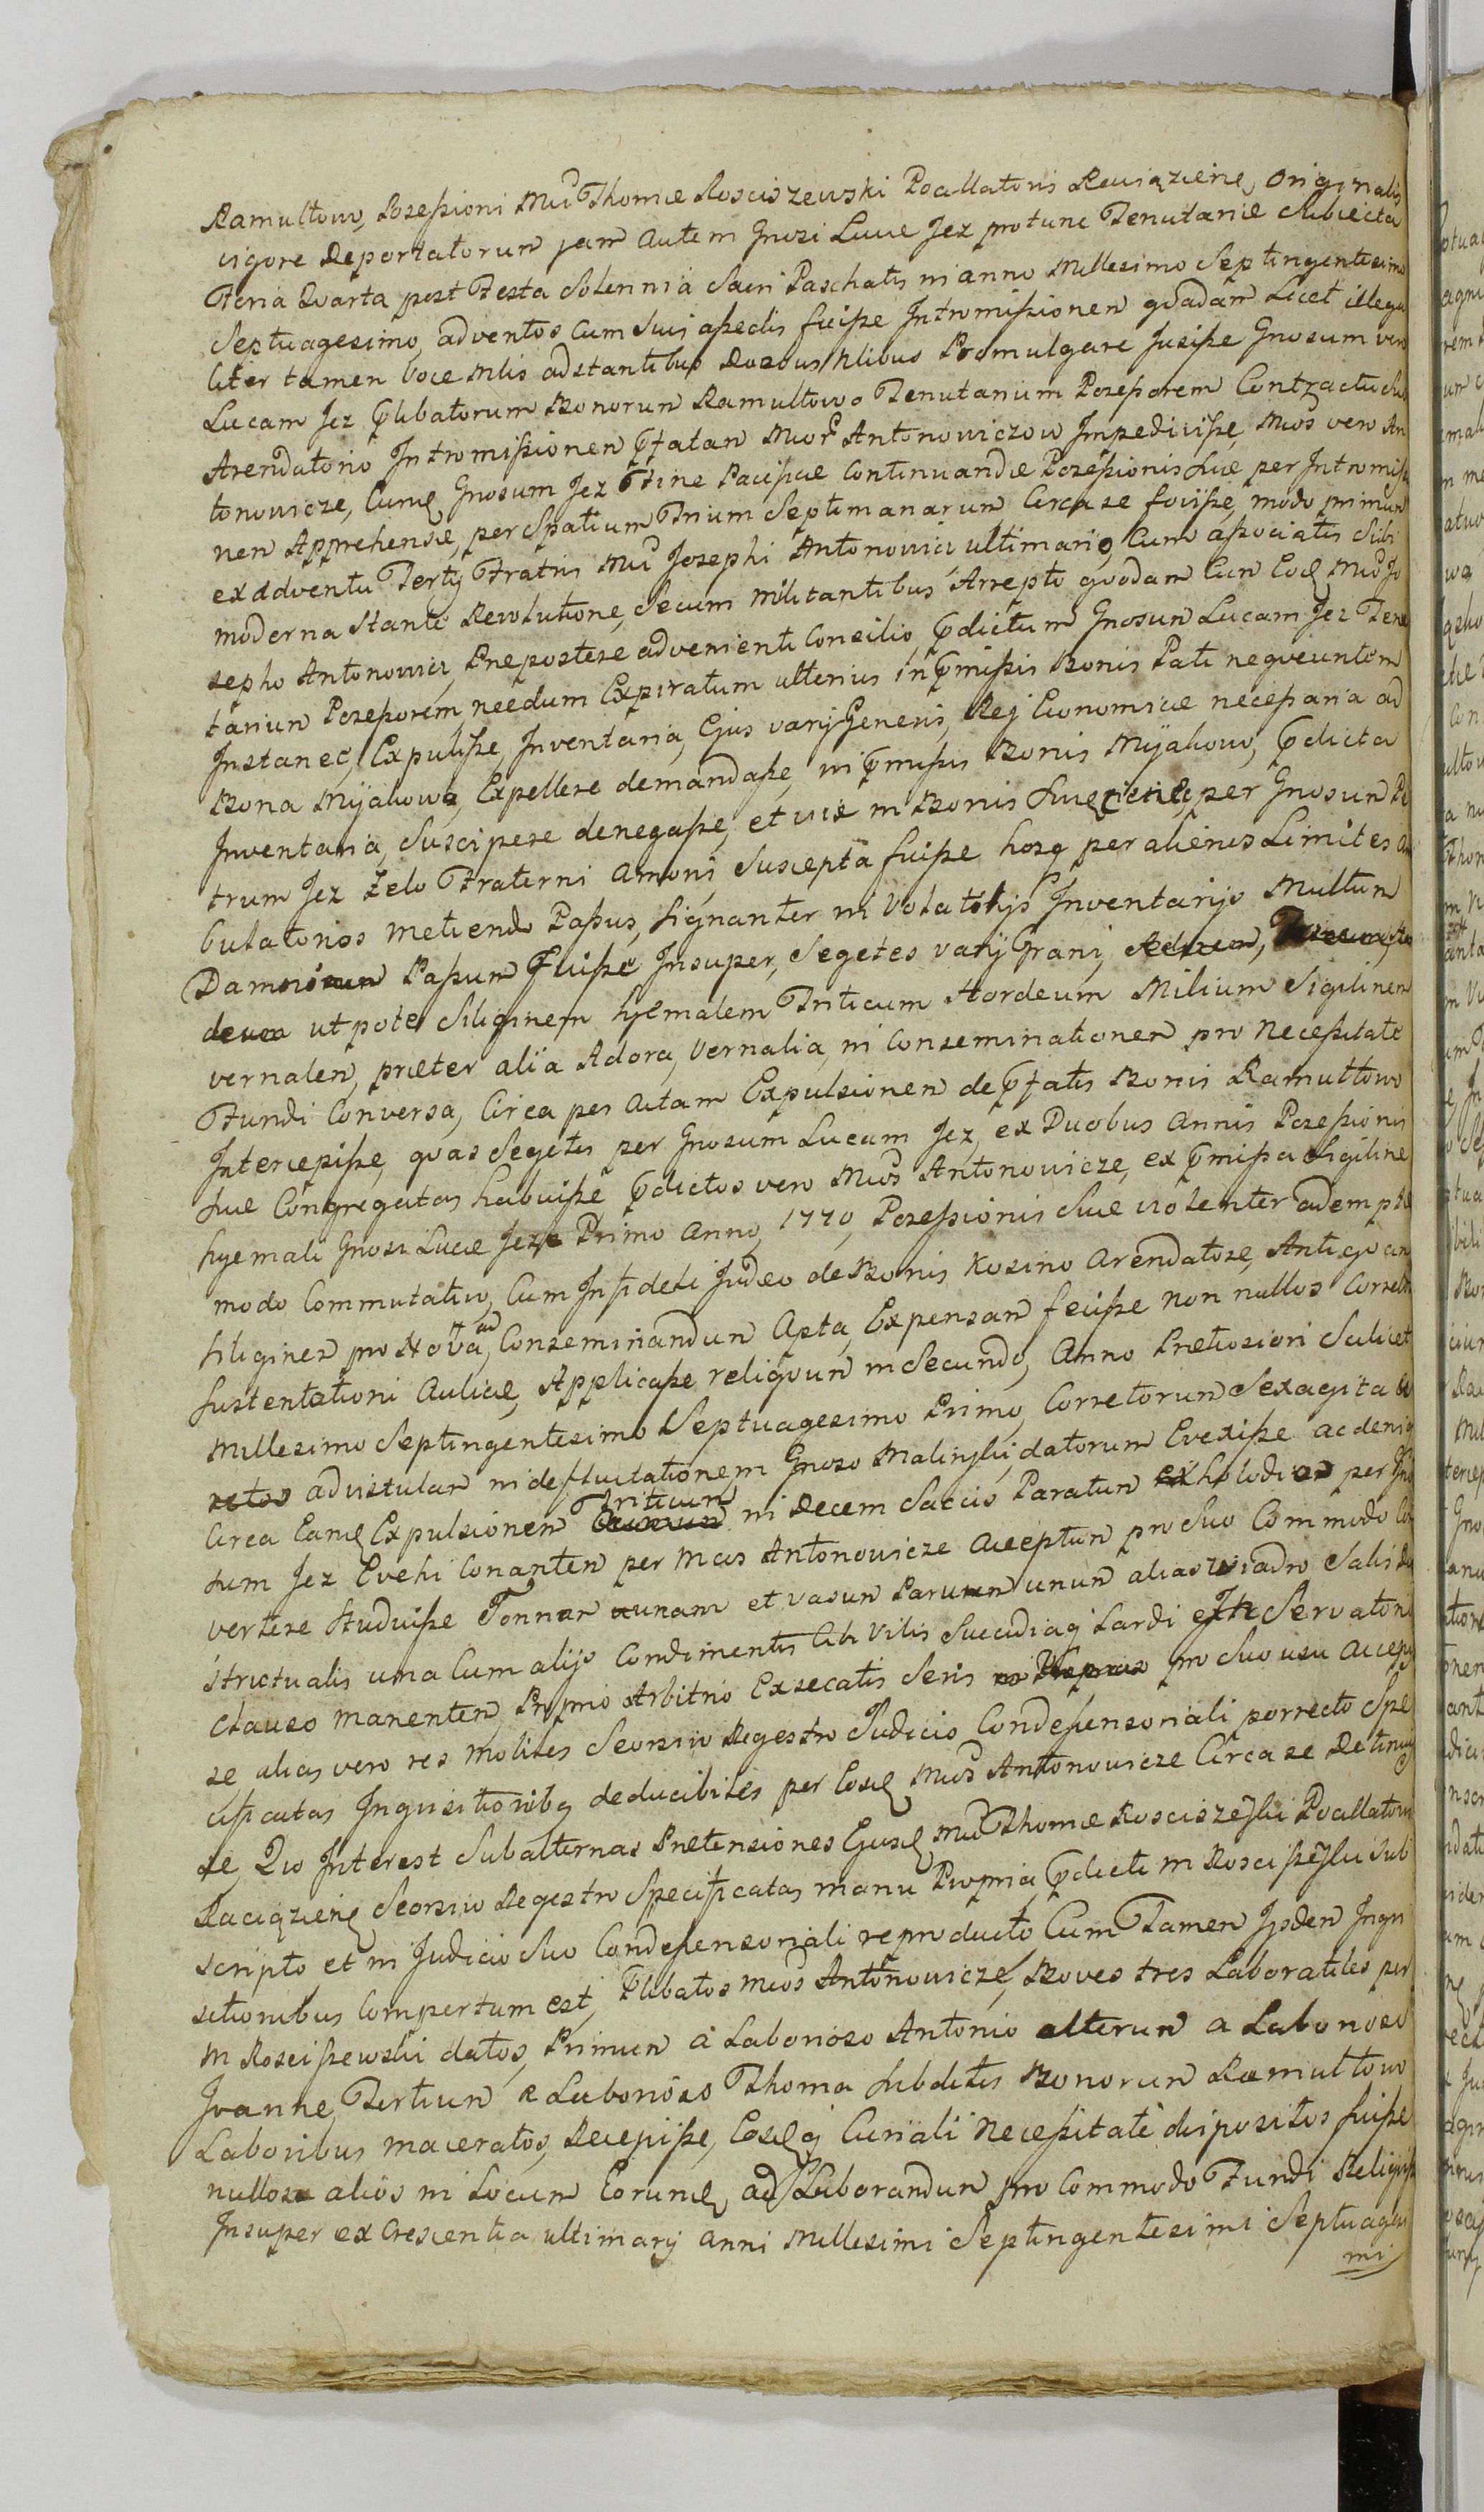 Ramultowo, Possessioni Mci Thomæ Rosciszewski Pocillatoris Raciąziene, Originalis
vigore Reportatorum jam autem Gnosi Lucæ Jez protunc Tenutariæ Subiecta
Feria Quarta post Festa Solennia Sacri Paschatis in anno Millesimo Septingentesimo
Septuagesimo, adventos Cum Suis assedis fuisse Intromissionem qvadam Licet illega
liter tamen voce Mlis adstantibus Promulgare Jusisse Gnosum vero
Lucam Jez Plibatorum Bonorum Ramultowo Tenutarium Possessorem Contractu
Arendatorio Intromissionem pfatam Mcor Antonowiczow Impedivisse, Mcos vero An
tonowicze, Cum Gnosum Jez Fine Pacificæ Continuandæ Possessionis Suæ per Intromissio
nem Apprehensæ, per Spatium Trium Septimanarum Circa se fovisse, modo primum
ex Adventu Tertij Fratris Mci Josephi Antonowicz ultimario, Cum associatis Sibi
moderna Stante Revolutione, Secum militantibus, Arrepto qvodam Cum Eod Mco Jo
sepho Antonowicz, Prepostere advenienti Consilio, pdictum Gnosum Lucam Jez Tenu
tarium Possessorem, necdum Expiratum ulterius in pmissis Bonis Pati neqveuntem
Instanec, Expulisse, Inventaria, Ejus varij Generis, Rej Economicæ necessaria ad
Bona Myjakowo, Expellere demandasse, in pmissis Bonis Myjakowo, pdicta
Inventaria, Suscipere denegasse, et vix in Bonis per Gnosum
trum Jez Zelo Fraterni Amoris Suscepta fuisse hosq per alienos Limites
bulatorios metiendo Passus, Signanter in Volatilijs Inventarijs Multum
Damnorum Passum Fuisse Insuper, Segetes varij Grani,
utpote Siliginem hyemalem Triticum Hordeum Milium Sigilinem
vernalem, præter alia Adora, Vernalia, in Conseminationem pro Necessitate
Fundi Conversa, Circa per actam Expulsionem de pfatis Bonis Ramultowo
Intercepisse, qvas Segetes per Gnosum Lucam Jez, ex Duobus annis Possessionis
Suæ Congregatas habuisse pdictos vero Mcos Antonowicze, ex pmissa Sigiline
hyemali Gnosi Lucæ Jez Primo Anno, 1770, Possessionis Suæ violenter adempta
modo Commutativo, Cum Infideli Judeo de Bonis Kosino Arendatore, Antiqvam
Siliginem pro Nova ad Conseminandum Apta, Expensam fecisse non nullos Corretos
Sustentationi Aulicæ, Applicasse reliqvum in Secundo, Anno Pretiosiori Scilicet
Millesimo Septingentesimo Septuagesimo Primo, Corretorum Sexaginta
ad vistulam in defluitationem Gnoso Malinski datorum Evexisse ac deniq
Circa Eand Expulsionem Triticum in Decem Saccis Paratum per Gno
sum Jez Evehi Conantem per Mcos Antonowicze acceptum pro Suo Commodo Con
vertere Studuisse Tonnam unam et vasum Parvum unum alias wiadro Salis
Structualis una Cum alijs Condimentis Civilis Succidiaq Lardi Servatori
clauso manentem Proprio Arbitrio Exsecatis Seris pro Suo usu accepis
se, alias vero res mobiles Seorsivo Regestro Judicio Condessensoriali porrecto Spe
cificatas Inqvisitionibq deducibiles per Eosd Mcos Antonowicze Circa se Retinuis
se, Qvo Interest Subalternas Pretensiones Ejusd Mci Thomæ Rosciszeski Pocillatoris
Raciązien Seorsivo Regestro Specificatas manu Propria pdicti M Roscisseski Sub
scripto et in Judicio Suo Condessensoriali reproducto Cum Tamen Ijsdem Inqvi
sitionibus Compertum est, Plibatos Mcos Antonowicze, Boves tres Laboratiles per
M Roscissewski datos, Primum a Laborioso Antonio alterum a Laborioso
Joanne, Tertium a Laborioso Thoma Subditis Bonorum Ramultowo
Laboribus maceratos, Recepisse, Eosdq Curiali Necessitati dispositos fuisse
nullos alios in Locum Eorund, ad Laborandum pro Commodo Fundi Reliqvisse
Insuper ex Crescentia ultimarij Anni Millesimi Septingentesimi Septuagesi
mi